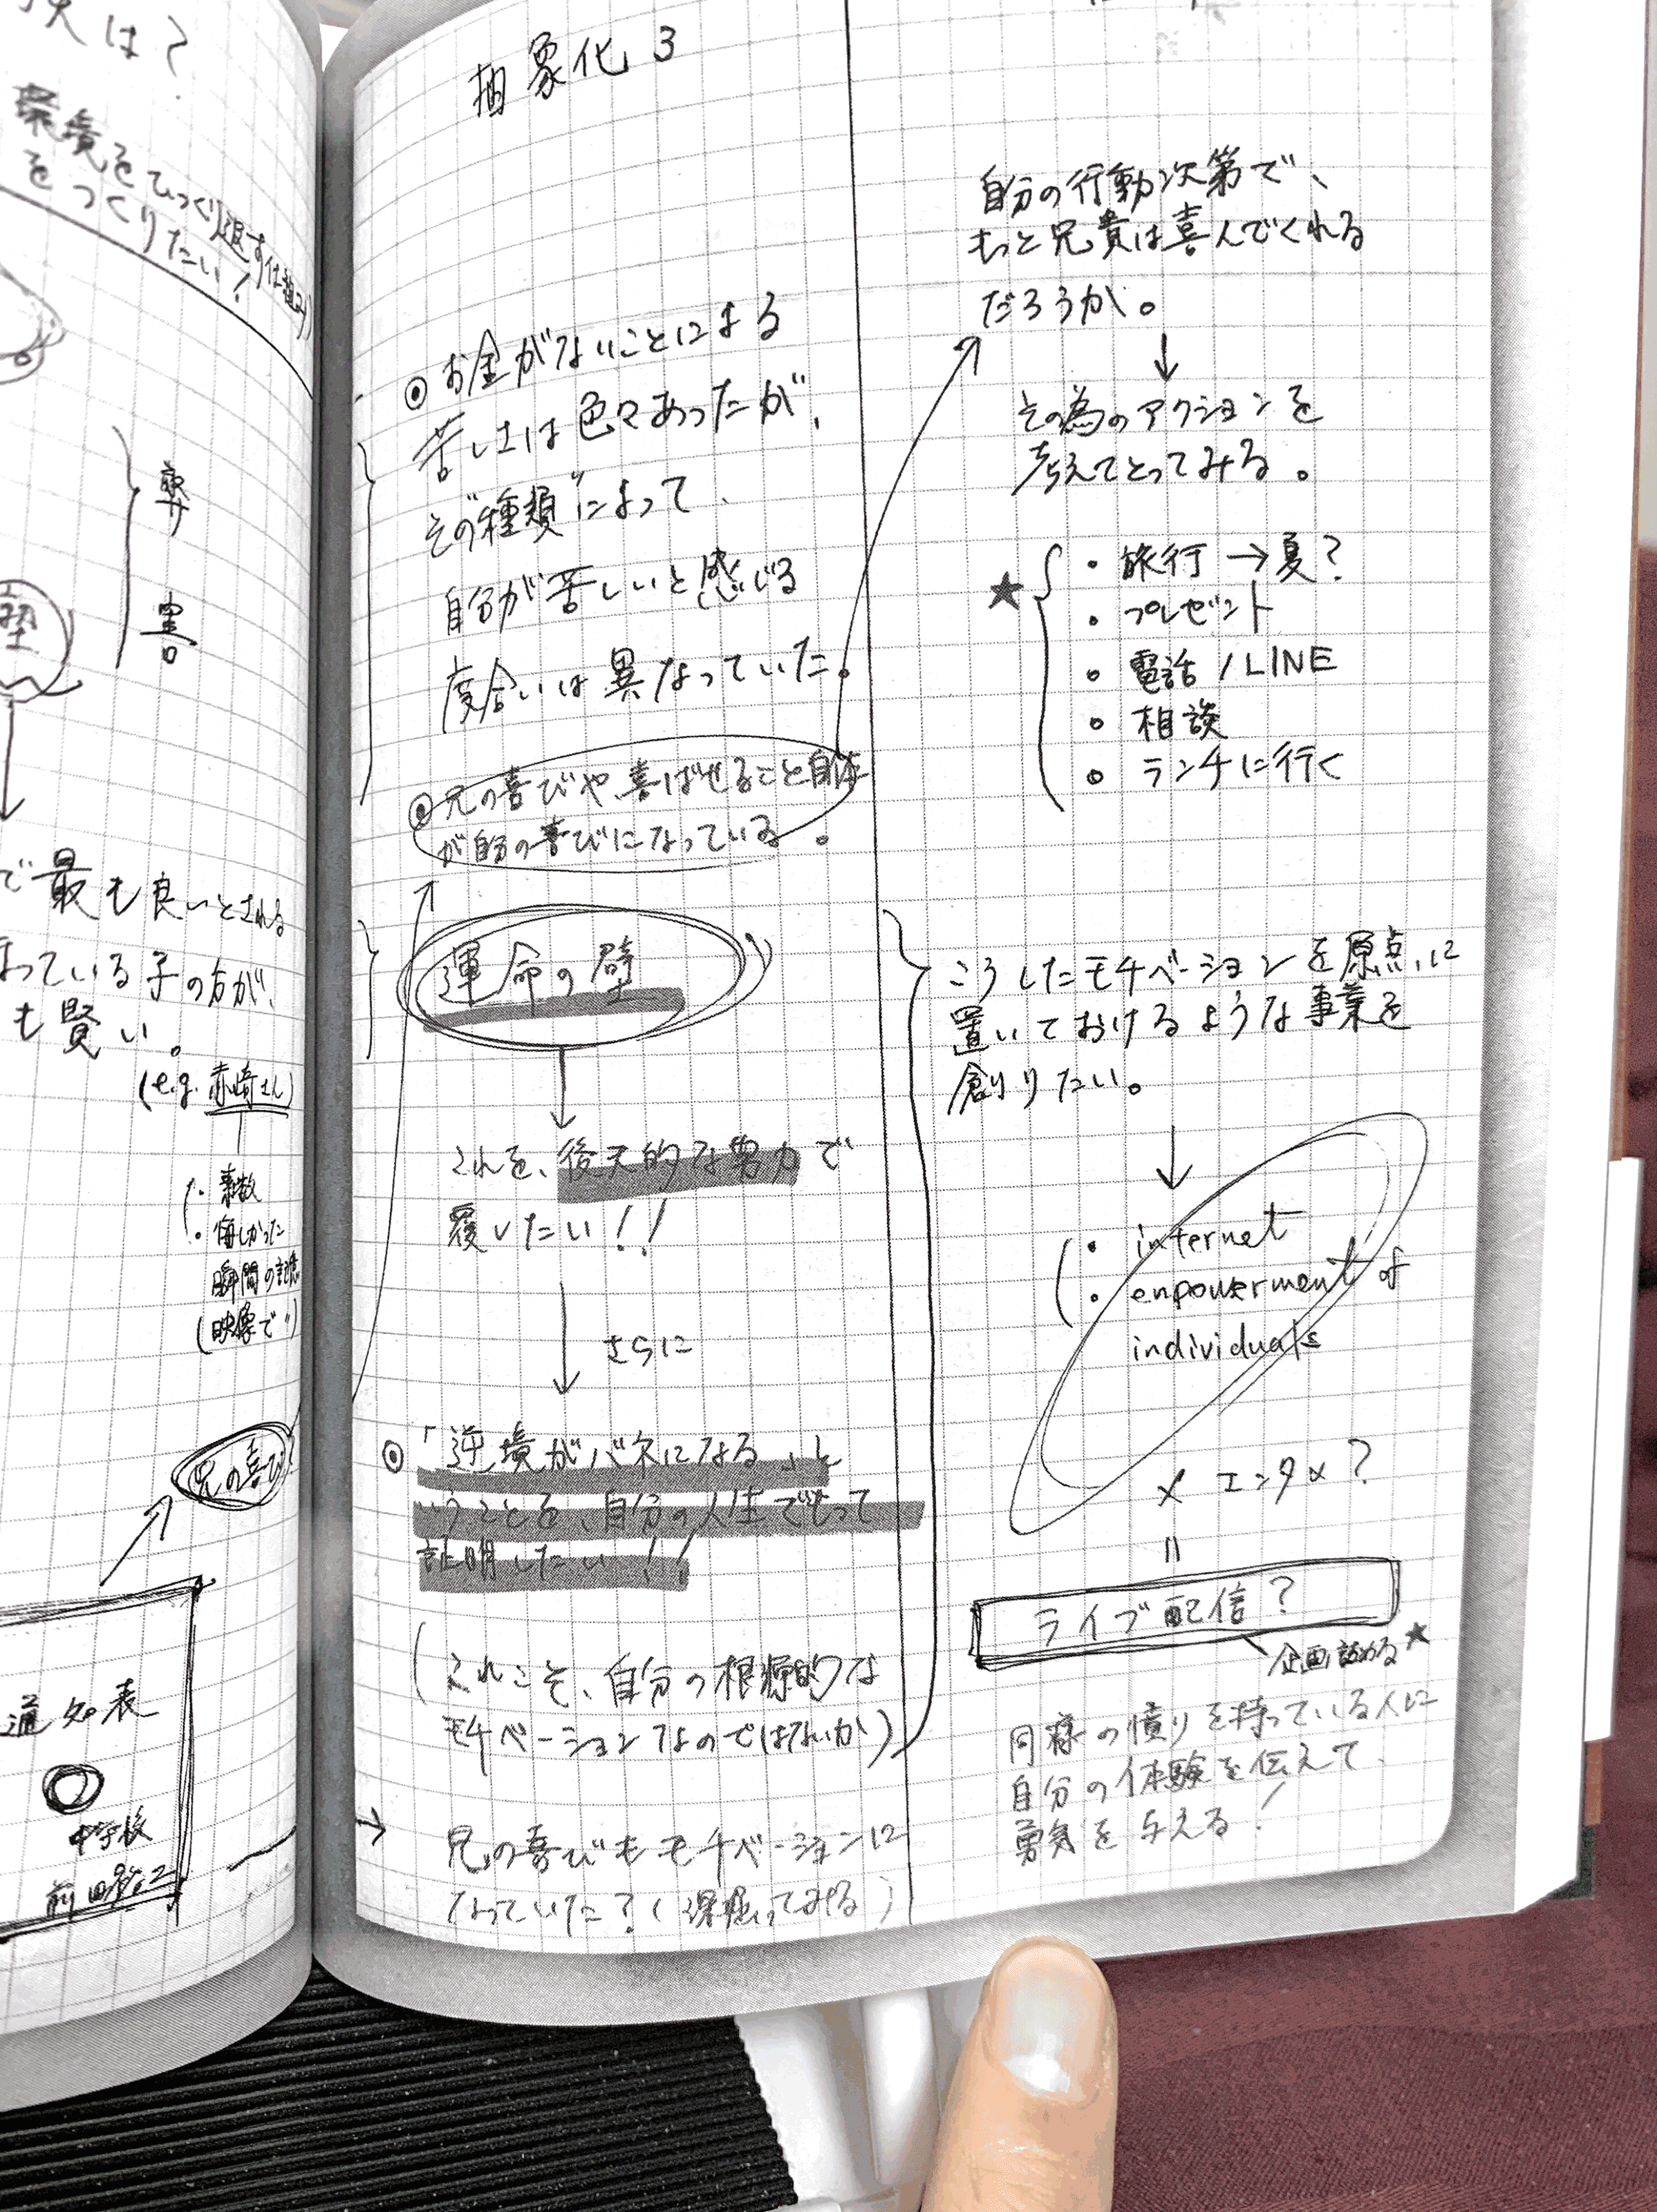 は?
環境をひっくり返す仕組み
をつくりたい!
弊
害
塾
で最も良いとされる
っている子の方が、
も賢い。
(e.g. 赤崎さん)
・素数
・悔しかった
瞬間の記憶
(映像で)
兄の喜び
通知表
中学校
前田裕二
抽象化3
◎お金がないことによる
苦しさは色々あったが、
その"種類"によって、
自分が苦しいと感じる
度合いは異なっていた。
◎兄の喜びや、喜ばせること自体
が自分の喜びになっている。
運命の壁
これを、後天的な努力で
覆したい!!
さらに
◎「逆境がバネになる」と
いうことを、自分の人生でもって
証明したい!!
(これこそ、自分の根源的な
モチベーションなのではないか)
→ 兄の喜びもモチベーションに
なっていた?(深掘ってみる)
自分の行動次第で、
もっと兄貴は喜んでくれる
だろうか。
その為のアクションを
考えてとってみる。
★
・旅行→夏?
・プレゼント
・電話/LINE
・相談
・ランチに行く
こうしたモチベーションを原点に
置いておけるような事業を
創りたい。
・internet
・enpowerment of
individuals
× エンタメ?
=
ライブ配信?
企画詰める★
同様の憤りを持っている人に
自分の体験を伝えて、
勇気を与える!